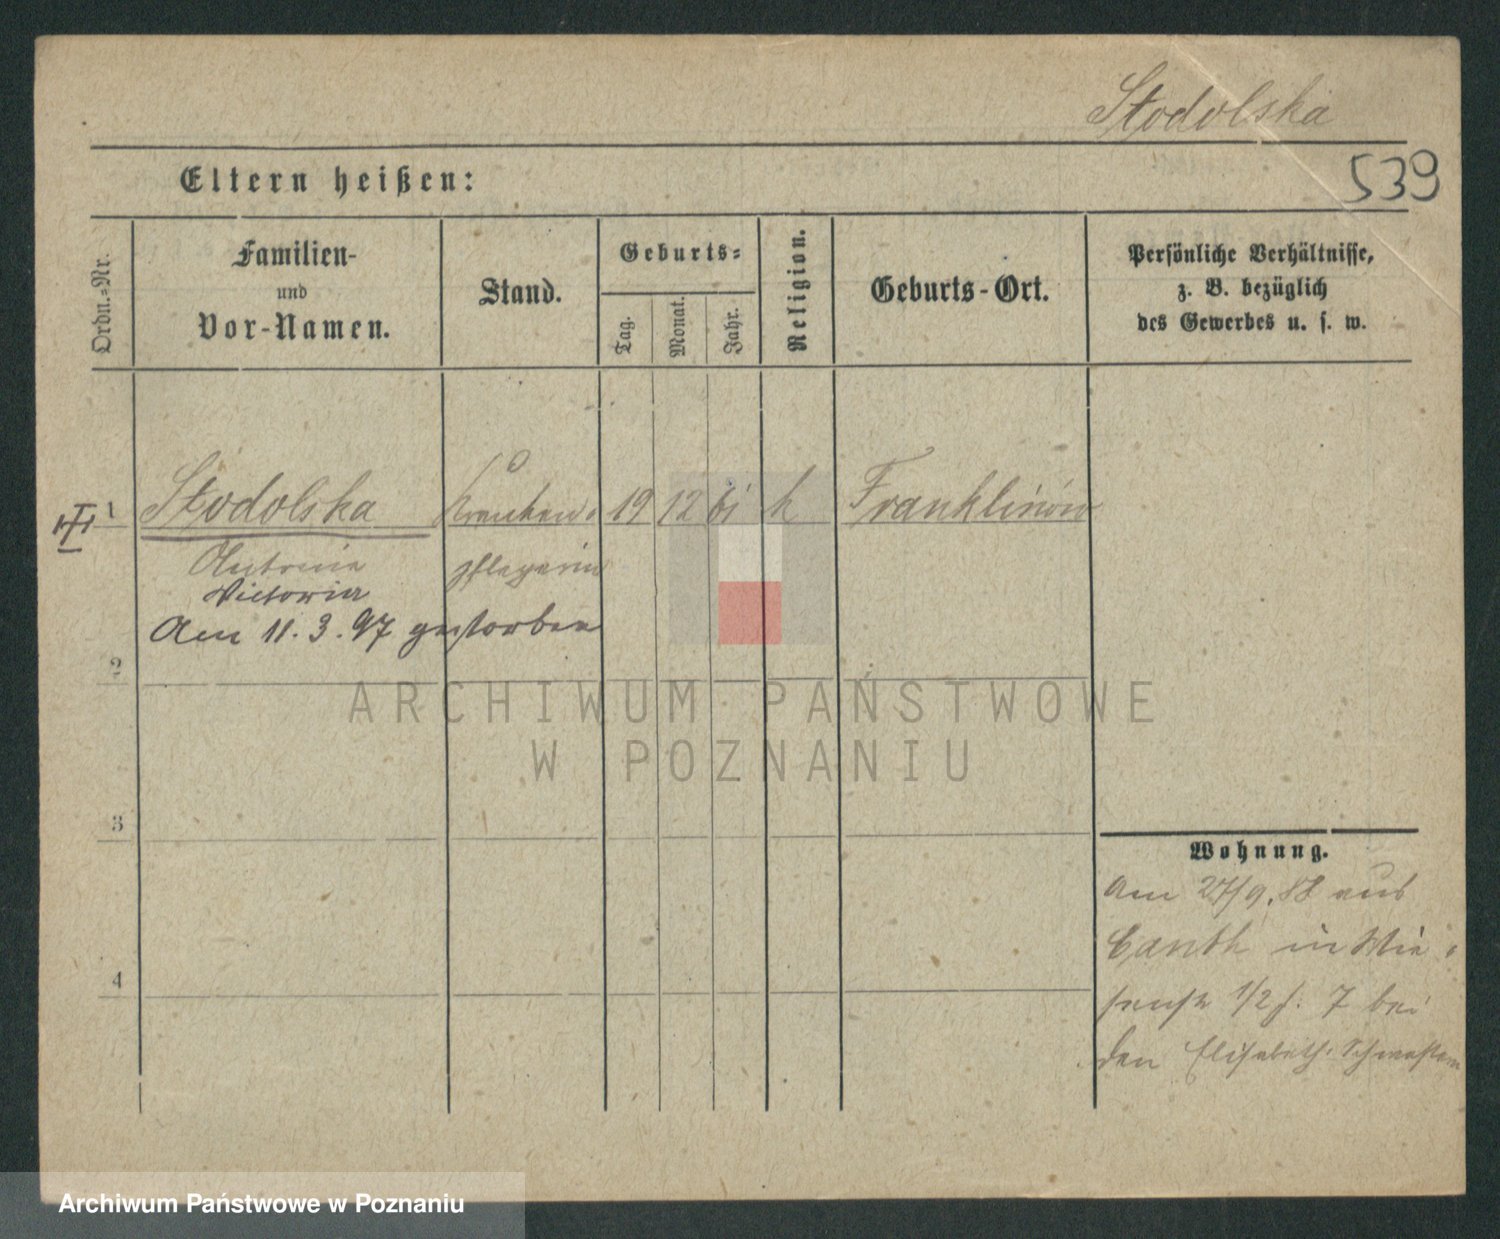 Stodolska
539
Eltern heißen:
Ordn.-Nr.
Familien-
und
Vor-Namen.
Stand.
Geburts-
Tag.
Monat.
Jahr.
Religion.
Geburts-Ort.
Persönliche Verhältnisse,
z. B. bezüglich
des Gewerbes u. s. w.
1 Stodolska Kranken- 19 12 61 k Franklinow
Antonie pflegerin
Victoria
Am 11.3.97 gestorben
2
ARCHIWUM PAŃSTWOWE
W POZNANIU
3
Wohnung.
Am 27/9.88 aus
Canth in Wie-
senstr 1/2 7 bei
den Elisabeth. Schwestern
4
Archiwum Państwowe w Poznaniu